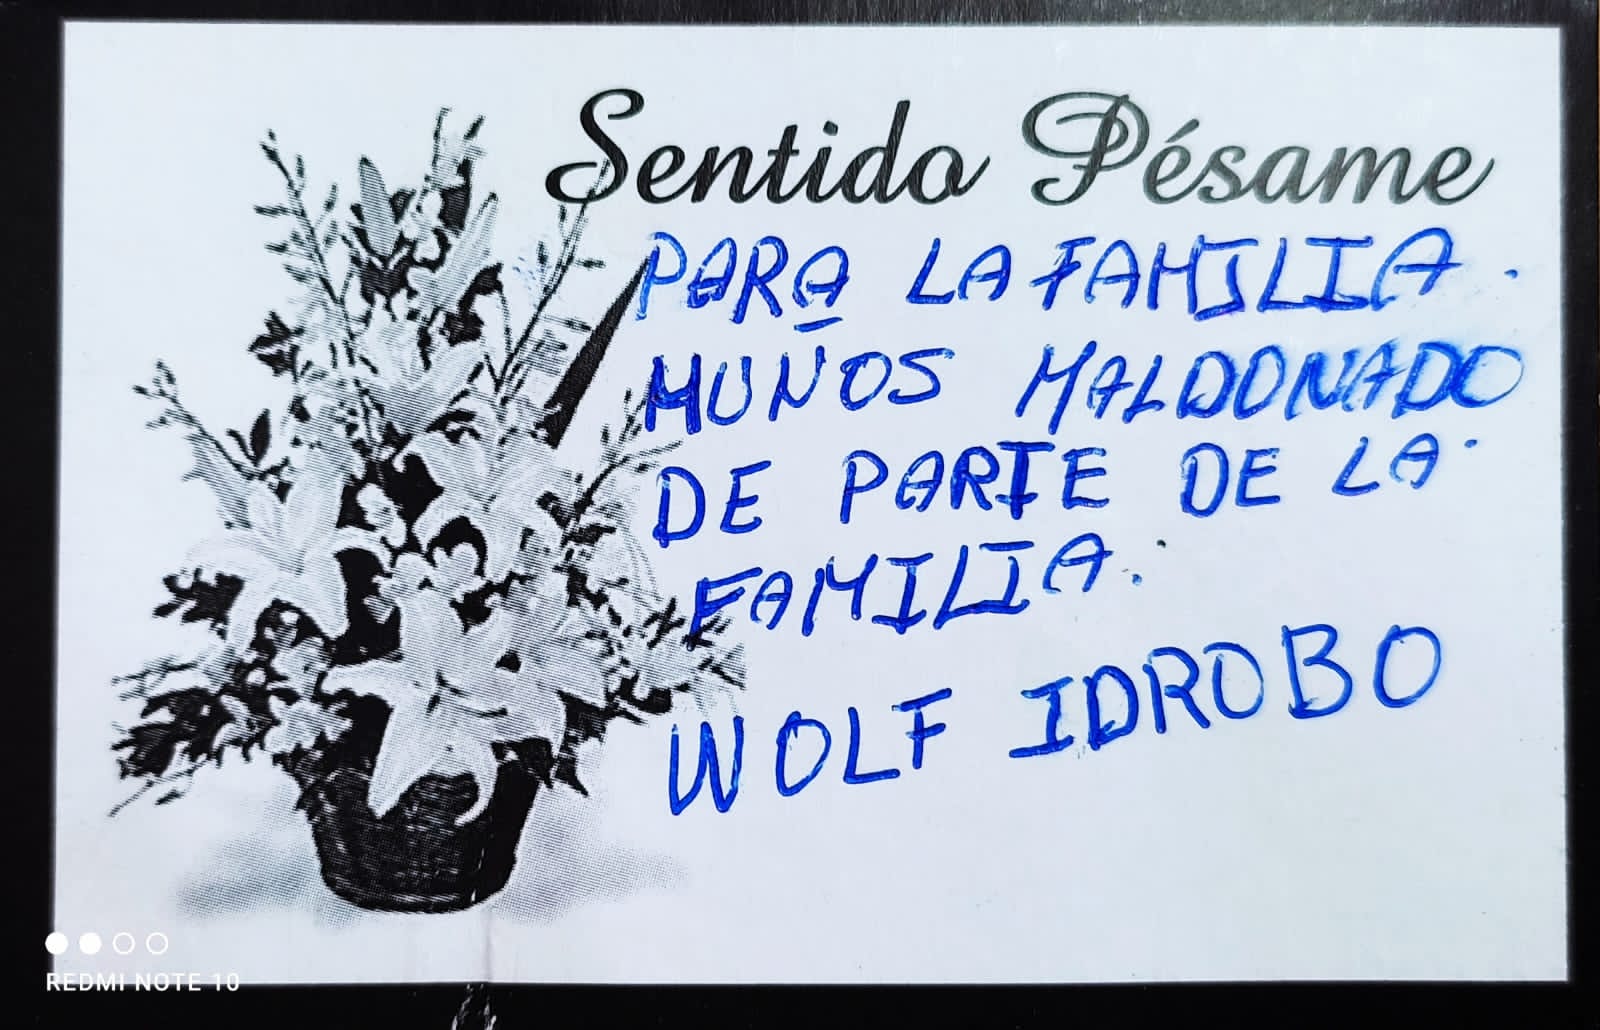 Sentido Pésame
PARA LA FAMILIA.
MUÑOS MALDONADO
DE PARTE DE LA.
FAMILIA.
WOLF IDROBO
REDMI NOTE 10